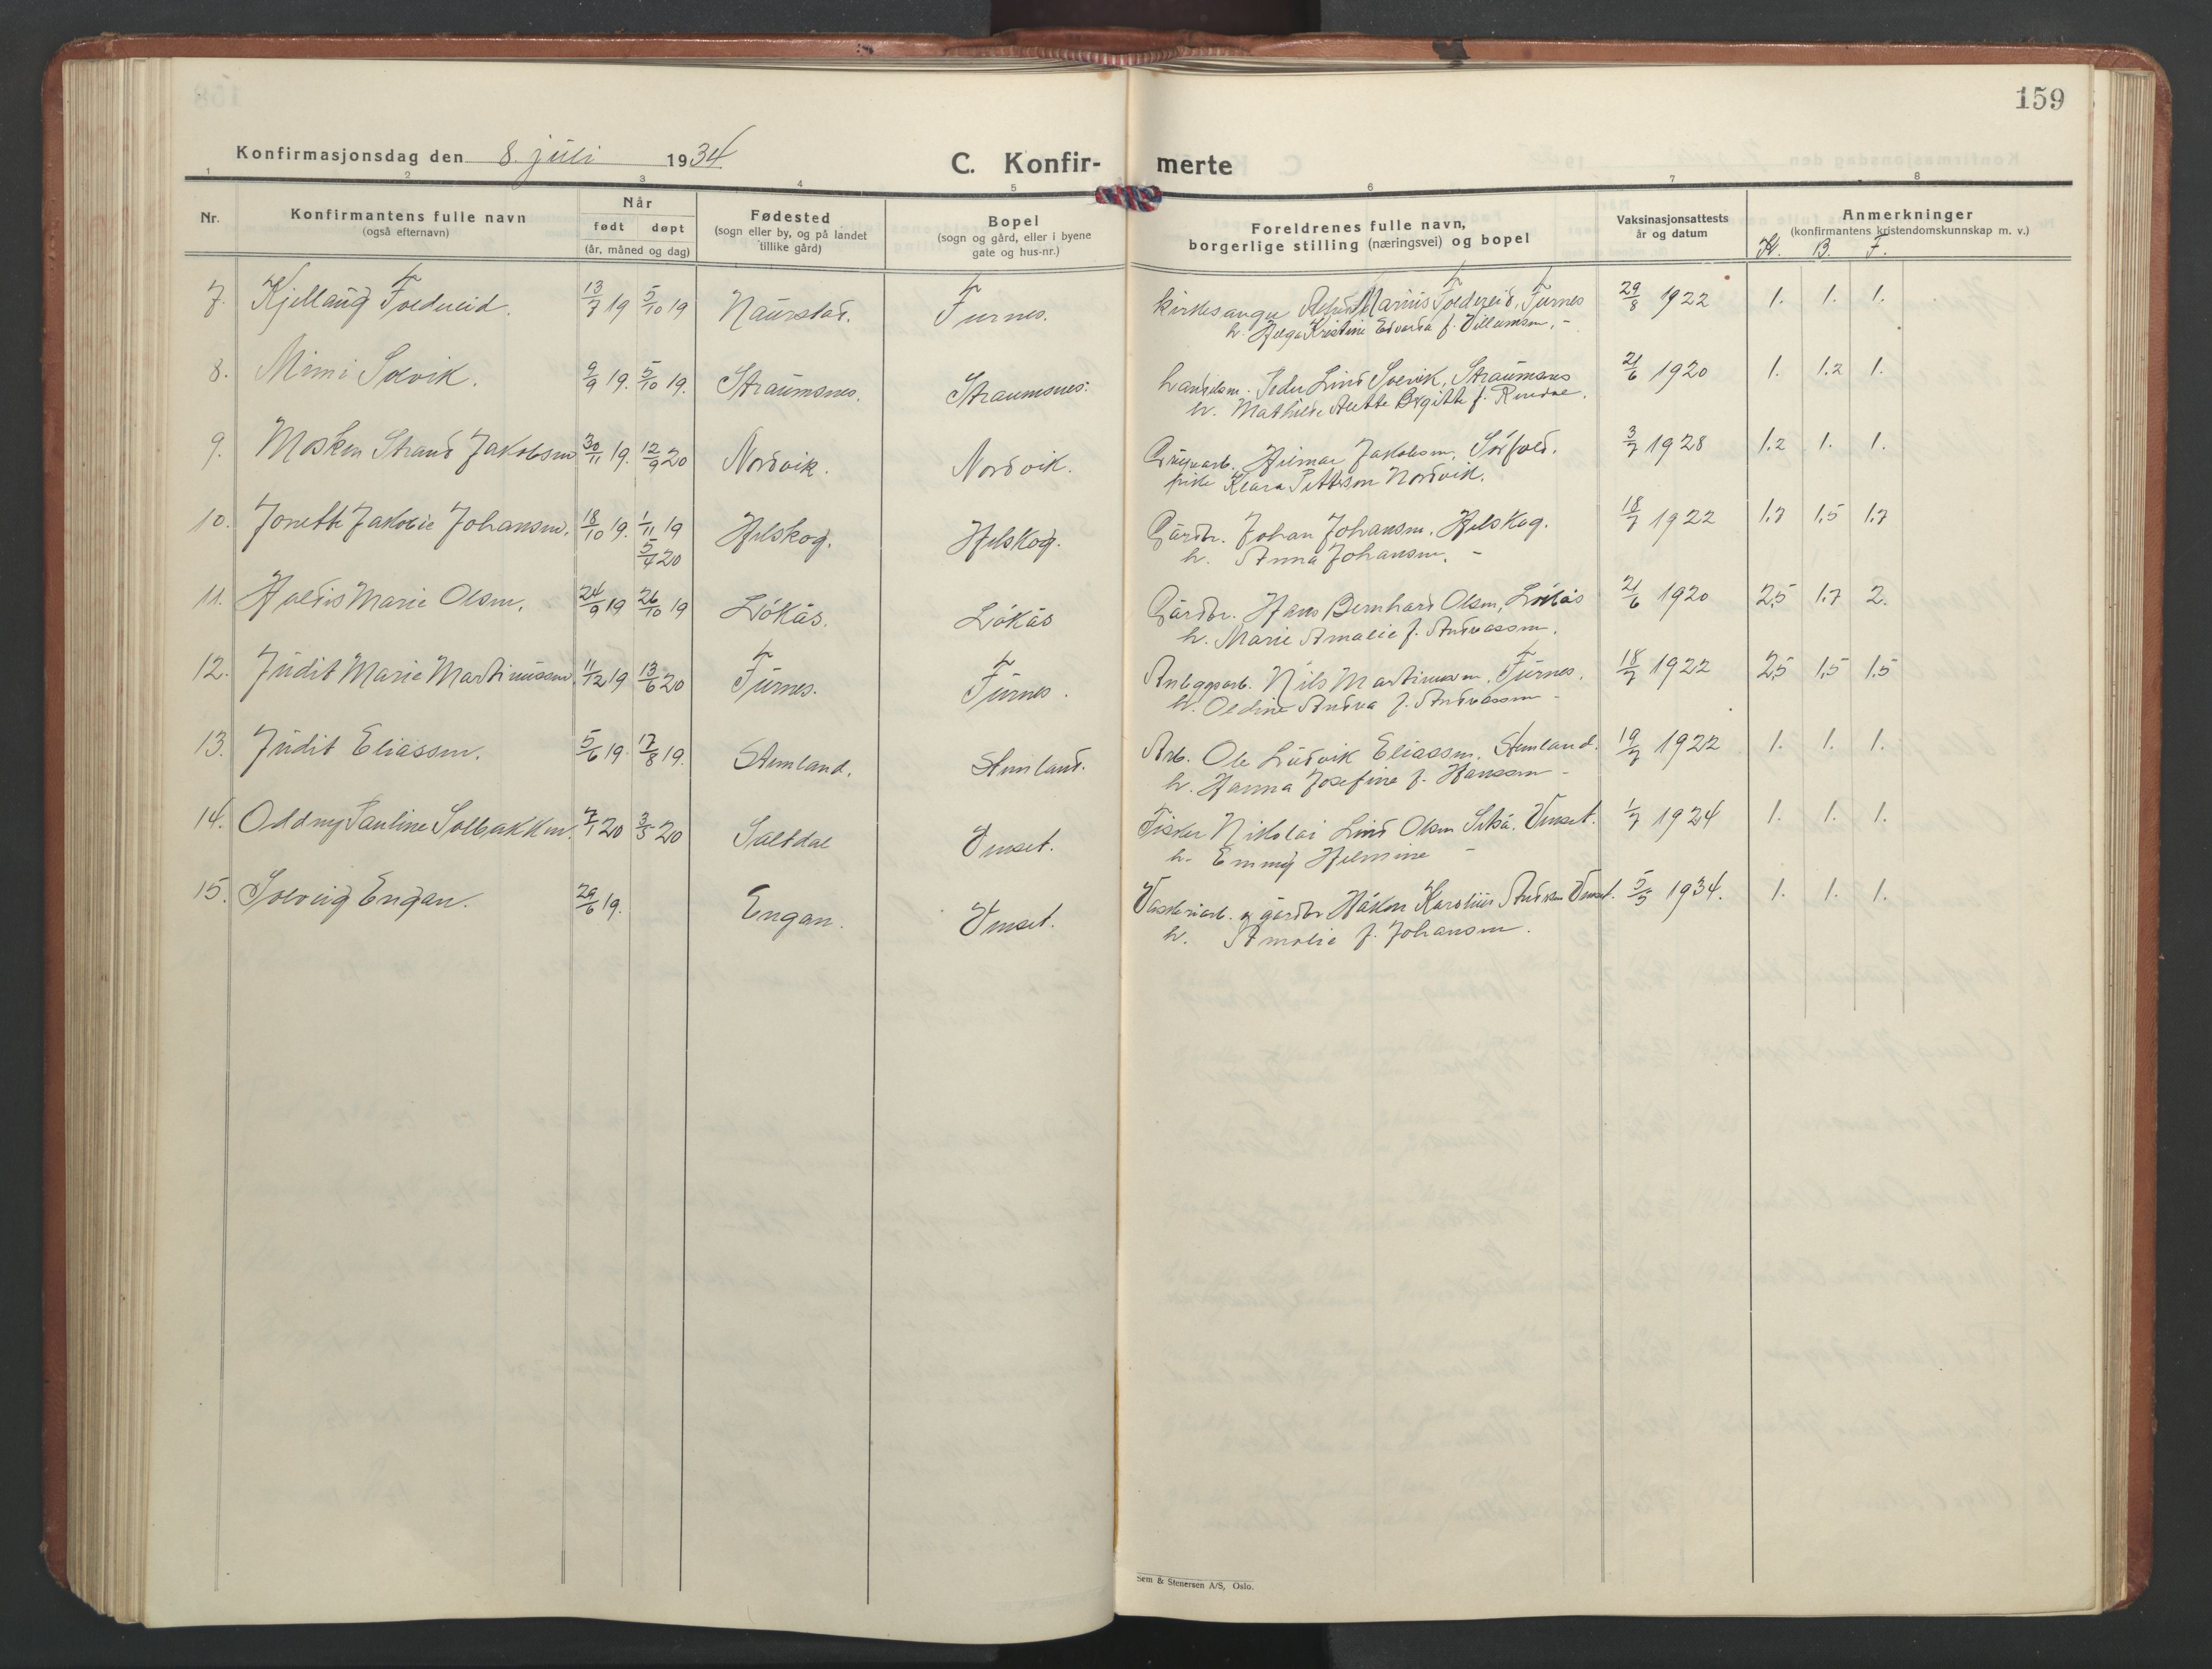 159
Konfirmasjonsdag den 8. juli 1934
C. Konfir- merte
1 2 3 4 5 6 7 8
Nr.
Konfirmantens fulle navn
(også efternavn)
Når
født døpt
(år, måned og dag)
Fødested
(sogn eller by, og på landet
tillike gård)
Bopel
(sogn og gård, eller i byene
gate og hus-nr.)
Foreldrenes fulle navn,
borgerlige stilling (næringsvei) og bopel
Vaksinasjonsattests
år og datum
Anmerkninger
(konfirmantens kristendomskunnskap m. v.)
Kr. B. F.
7. Kjellaug Foldereid. 13/7 19 5/10 19 Naurstad. Furnes. Kirkesanger Marius Foldereid, Furnes 29/8 1922 1. 1. 1.
h. Helga Kristine Edvarda f. Villumsen. -
8. Mimi Solvik. 9/9 19. 5/10 19. Straumsnes. Straumsnes. handelsm. Peder Lind Solvik, Straumsnes 21/6 1920 1. 1.2 1.
h. Mathilde Anette Birgitte f.
9. Mosken Strand Jakobsen 30/11 19. 12/9 20 Nordvik. Nordvik. Gruvearb. Hilmar Jakobsen, Sørfold. 3/7 1928 1.2 1. 1.
pike Klara Pettersen Nordvik.
10. Jonette Jakobie Johansen. 18/10 19. 1/11 19 Helskog. Helskog. Gårdbr. Johan Johansen, Helskog. 18/7 1922 1.7 1.5 1.7
5/4 20 h. Anna Johansen. -
11. Haldis Marie Olsen. 24/9 19 26/10 19 Løkås. Løkås Gårdbr. Hans Bernhard Olsen, Løkås 21/6 1920 2.5 1.7 2.
h. Marie Amalie f. Andreassen.
12. Judit Marie Martinussen. 11/12 19 13/6 20 Furnes. Furnes. Anleggsarb. Nils Martinussen, Furnes. 18/7 1922 2.5 1.5 1.5
h. Oldine Andrea f. Andreassen -
13. Judit Eliassen. 5/6 19. 17/8 19. Stemland. Stemland. Arb. Ole Ludvik Eliassen, Stemland. 19/7 1922 1. 1. 1.
h. Hanna Josefine f. Hanssen -
14. Oddny Pauline Solbakken. 7/1 20 3/5 20 Saltdal Venset. Fisker Nikolai Lind Olsen Setså, Venset. 1/7 1924 1. 1. 1.
h. Emmy Helmine -
15. Solveig Engan. 29/6 19. Engan. Venset. Vaskeriarb. og gårdbr Håkon Karolius Andersen Venset. 5/5 1934. 1. 1. 1.
h. Amalie f. Johansen.
Sem & Stenersen A/S, Oslo.